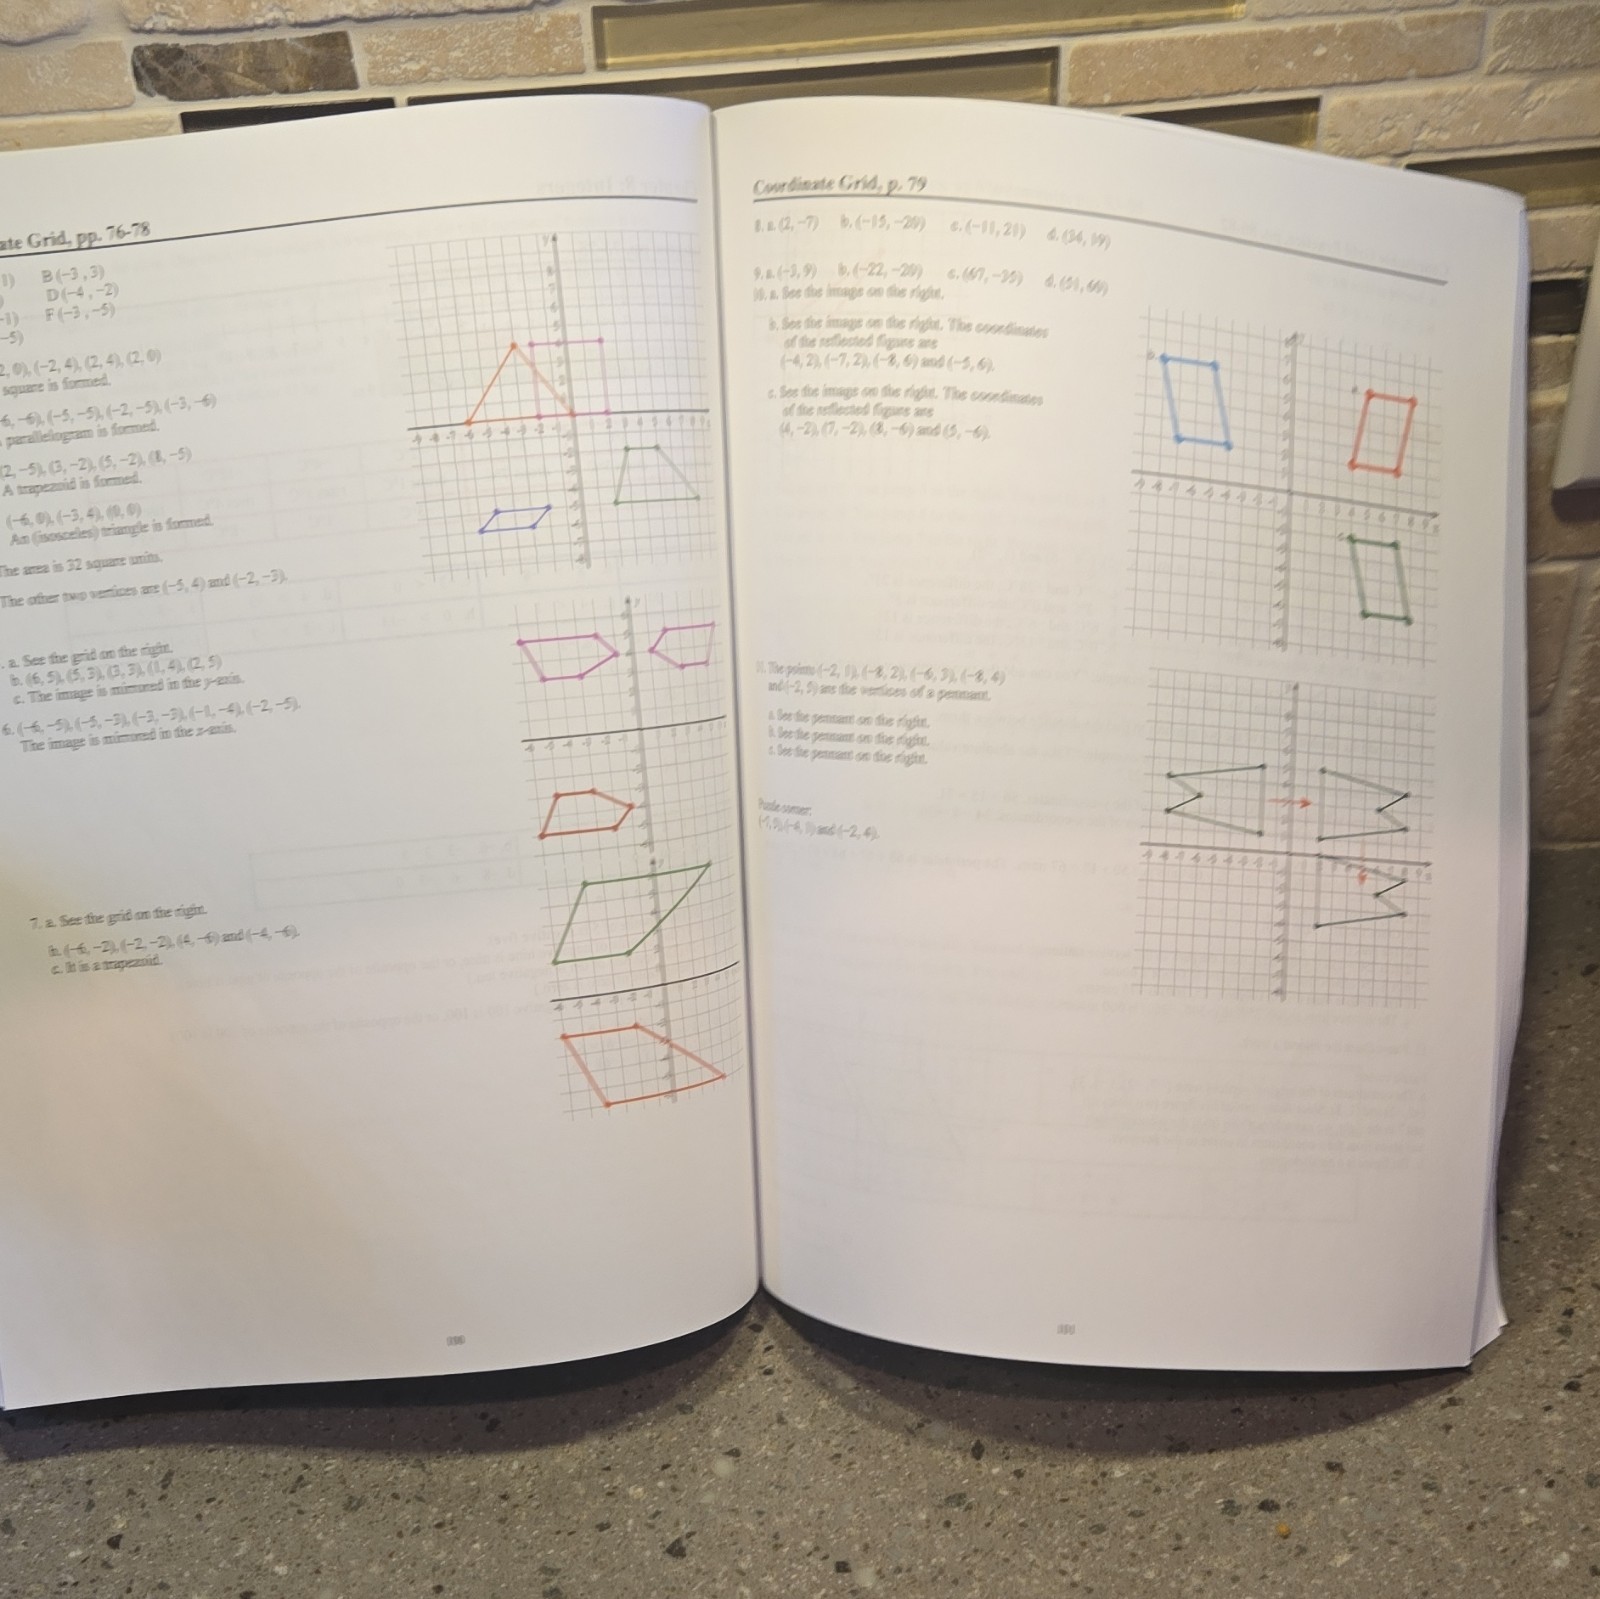 ate Grid, pp. 76-78
1) B(−3, 3)
D(−4, −2)
−1) F(−3, −5)
−5)
2, 0), (−2, 4), (2, 4), (2, 0)
square is formed.
6, −6), (−5, −5), (−2, −5), (−3, −6)
parallelogram is formed.
2, −5), (3, −2), (5, −2), (8, −5)
A trapezoid is formed.
(−6, 0), (−3, 4), (0, 0)
An (isosceles) triangle is formed.
The area is 32 square units.
The other two vertices are (−5, 4) and (−2, −3).
. a. See the grid on the right.
b. (6, 5), (5, 3), (3, 3), (1, 4), (2, 5)
c. The image is mirrored in the y-axis.
6. (−6, −5), (−5, −3), (−3, −3), (−1, −4), (−2, −5).
The image is mirrored in the x-axis.
7. a. See the grid on the right.
b. (−6, −2), (−2, −2), (4, −6) and (−4, −6).
c. It is a trapezoid.
Coordinate Grid, p. 79
8. a. (2, −7) b. (−15, −20) c. (−11, 21)
9. a. (−3, 9) b. (−22, −20) c. (67, −35)
10. a. See the image on the right.
b. See the image on the right. The coordinates
of the reflected figure are
(−4, 2), (−7, 2), (−8, 6) and (−5, 6).
c. See the image on the right. The coordinates
of the reflected figure are
(4, −2), (7, −2), (8, −6) and (5, −6).
11. The points (−2, 1), (−8, 2), (−6, 3), (−8, 4)
and (−2, 5) are the vertices of a pennant.
a. See the pennant on the right.
b. See the pennant on the right.
c. See the pennant on the right.
Puzzle corner:
and (−2, 4).